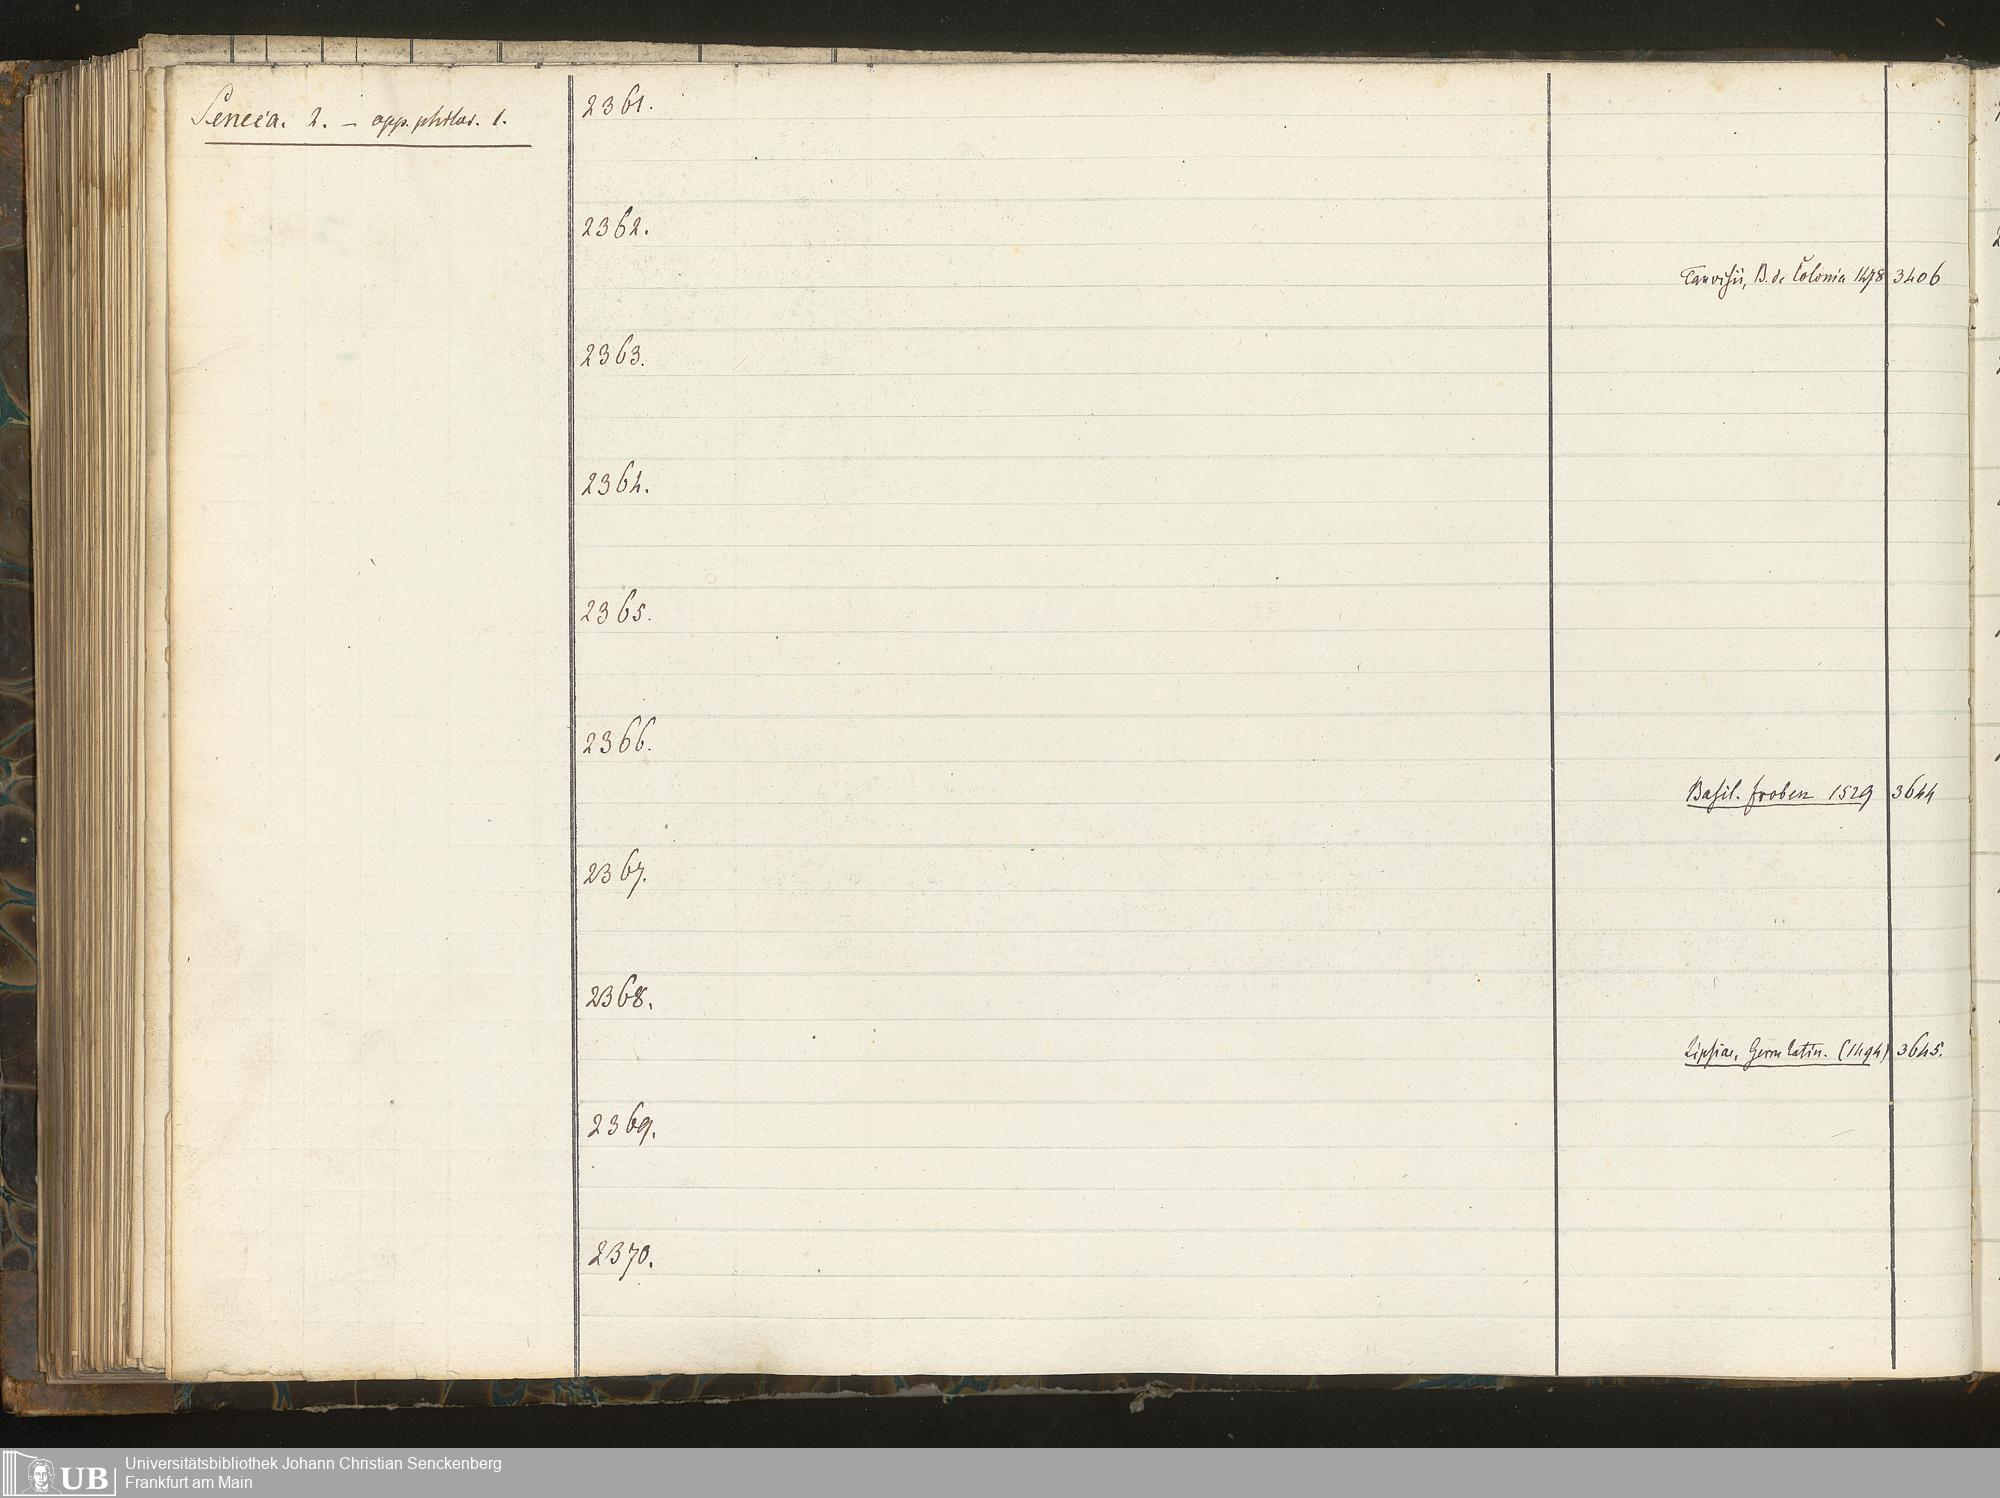 Seneca. 2. – opp. philos. 1.
2361.
2362.
Tarvisii, B. de Colonia 1478 3406
2363.
2364.
2365.
2366.
Basil. Froben 1529 3644
2367.
2368.
Lipsiae, Germ latin. (1494) 3645.
2369.
2370.
UB
Universitätsbibliothek Johann Christian Senckenberg
Frankfurt am Main